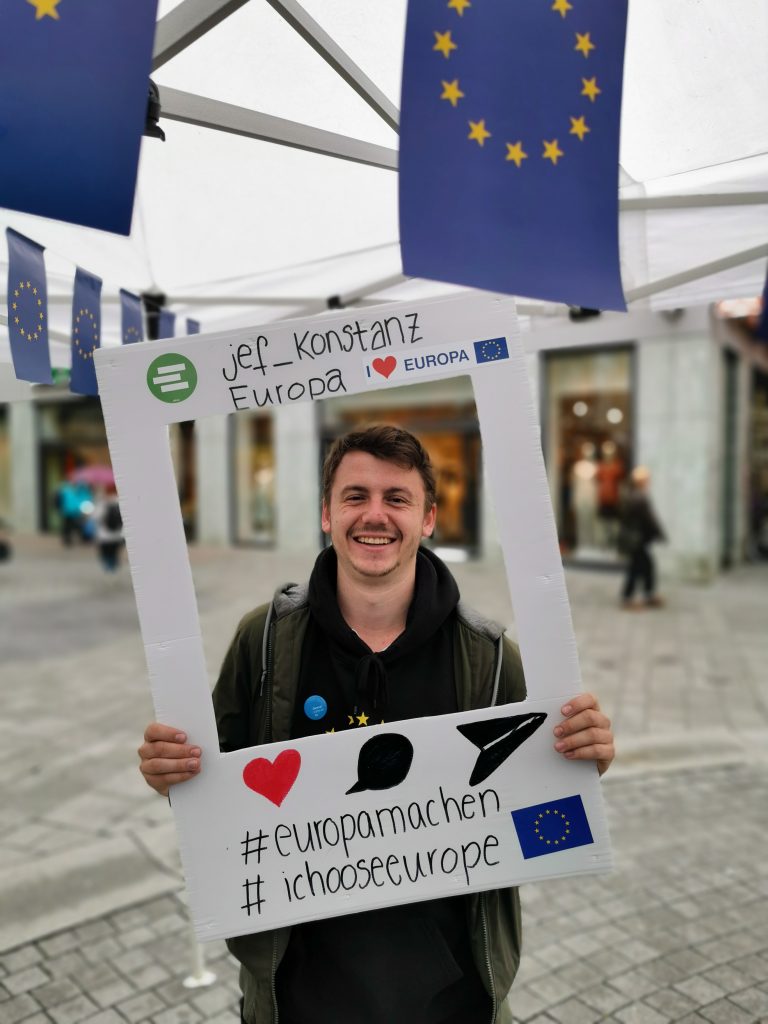 jef_Konstanz
Europa
I ❤ EUROPA
#europamachen
# ichooseeurope